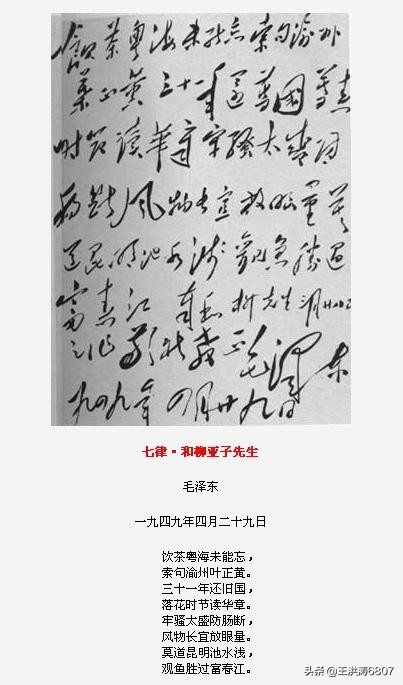 飲茶粵海未能忘索句渝州
葉正黄三十一年還舊國落花
時節讀華章牢騷太盛防
腸斷風物長宜放眼量莫
道昆明池水淺觀魚勝過
富春江 奉和柳先生三月廿八日
之作敬祈教正毛澤東
一九四九年四月廿九日
七律·和柳亚子先生
毛泽东
一九四九年四月二十九日
饮茶粤海未能忘，
索句渝州叶正黄。
三十一年还旧国，
落花时节读华章。
牢骚太盛防肠断，
风物长宜放眼量。
莫道昆明池水浅，
观鱼胜过富春江。
头条 @王洪涛6807